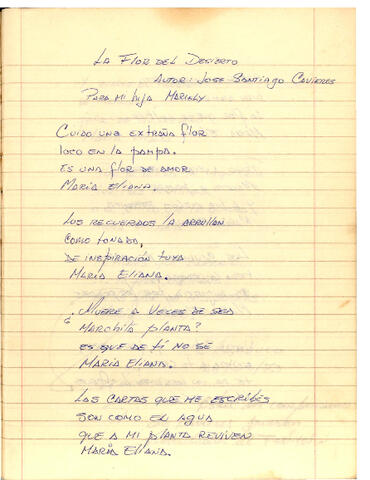 LA FLOR DEL DESIERTO
AUTOR: JOSE SANTIAGO CAVIERES
PARA MI hija MARIELY
CUIDO UNA EXTRAÑA FLOR
LOCO EN LA PAMPA.
ES UNA FLOR DE AMOR
MARÍA ELIANA.
LOS RECUERDOS LA ARRULLAN
COMO TONADA,
DE INSPIRACIÓN TUYA
MARÍA ELIANA.
¿MUERE A VECES DE SED
MARCHITA PLANTA?
ES QUE DE TÍ NO SÉ
MARÍA ELIANA.
LAS CARTAS QUE ME ESCRIBES
SON COMO EL AGUA
QUE A MI PLANTA REVIVEN
MARÍA ELIANA.